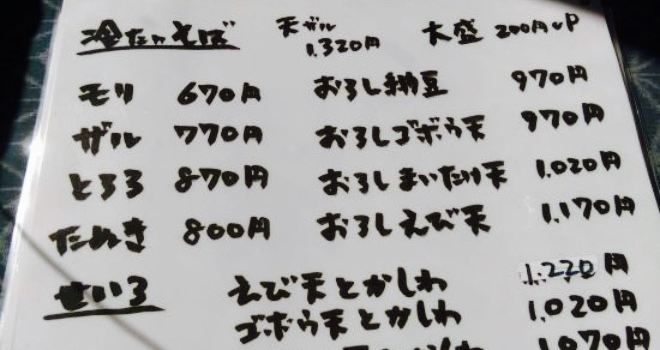 冷たいそば 天ザル 1,320円 大盛 200円UP
モリ 670円 おろし納豆 970円
ザル 770円 おろしゴボウ天 970円
とろろ 870円 おろしまいたけ天 1,020円
たぬき 800円 おろしえび天 1,170円
せいろ えび天とかしわ 1,220円
ゴボウ天とかしわ 1,020円
1,070円